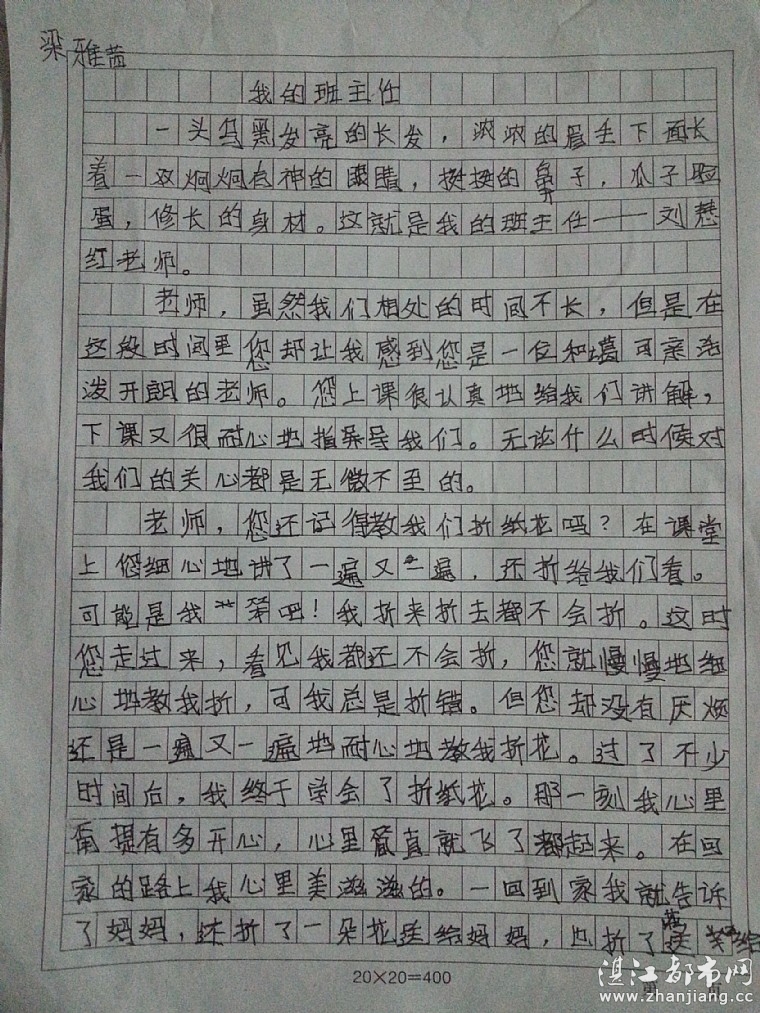 梁雅茜
我的班主任
一头乌黑发亮的长发，浓浓的眉毛下面长
着一双炯炯有神的眼睛，挺挺的鼻子，瓜子脸
蛋，修长的身材。这就是我的班主任——刘慧
红老师。
老师，虽然我们相处的时间不长，但是在
这段时间里您却让我感到您是一位和蔼可亲活
泼开朗的老师。您上课很认真地给我们讲解，
下课又很耐心地指导我们。无论什么时候对
我们的关心都是无微不至的。
老师，您还记得教我们折纸花吗？在课堂
上您细心地讲了一遍又一遍，还折给我们看。
可能是我笨吧！我折来折去都不会折。这时
您走过来，看见我都还不会折，您就慢慢地细
心地教我折，可我总是折错。但您却没有厌烦
还是一遍又一遍地耐心地教我折花。过了不少
时间后，我终于学会了折纸花。那一刻我心里
甭提有多开心，心里简直就飞了都起来。在回
家的路上我心里美滋滋的。一回到家我就告诉
了妈妈，还折了一朵花送给妈妈，也折了送给
20×20=400
湛江都市网
www.zhanjiang.cc